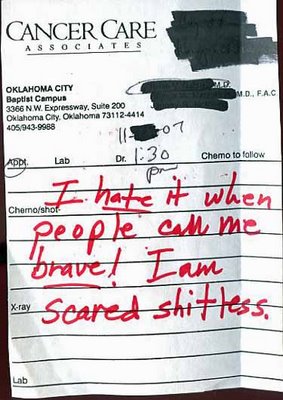 CANCER CARE
ASSOCIATES
OKLAHOMA CITY
Baptist Campus
3366 N.W. Expressway, Suite 200
Oklahoma City, Oklahoma 73112-4414
405/943-9988
M.D.
M.D., F.A.C
11- -07
Appt. Lab Dr. 1:30 Chemo to follow
pm
I hate it when
Chemo/shot
people call me
brave! I am
X-ray scared shitless.
Lab